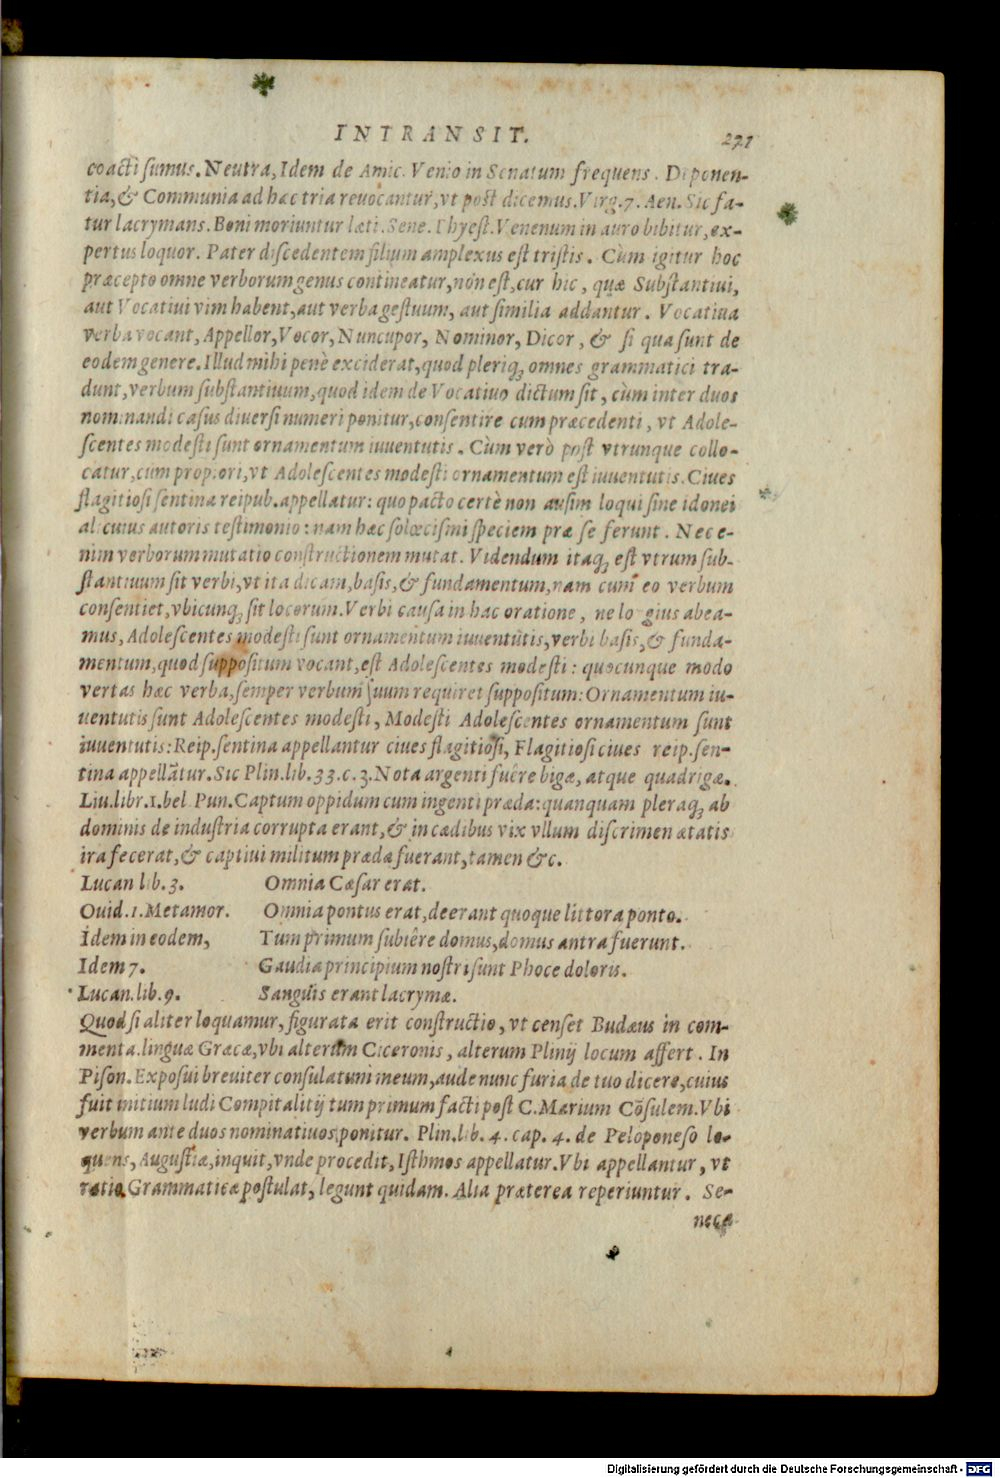 INTRANSIT. 271
coacti sumus. Neutra, Idem de Amic. Venio in Senatum frequens. Deponen-
tia, & Communia ad hæc tria reuocantur, vt post dicemus. Virg. 7. Aen. Sic fa-
tur lacrymans. Boni moriuntur læti. Sene. Thyest. Venenum in auro bibitur, ex-
pertus loquor. Pater discedentem filium amplexus est tristis. Cùm igitur hoc
præcepto omne verborum genus contineatur, non est, cur hic, quæ Substantiui,
aut Vocatiui vim habent, aut verba gestuum, aut similia addantur. Vocatiua
verba vocant, Appellor, Vocor, Nuncupor, Nominor, Dicor, & si qua sunt de
eodem genere. Illud mihi penè exciderat, quod pleriq; omnes grammatici tra-
dunt, verbum substantiuum, quod idem de Vocatiuo dictum sit, cùm inter duos
nominandi casus diuersi numeri ponitur, consentire cum præcedenti, vt Adole-
scentes modesti sunt ornamentum iuuentutis. Cùm verò post vtrunque collo-
catur, cum propiori, vt Adolescentes modesti ornamentum est iuuentutis. Ciues
flagitiosi sentina reipub. appellatur: quo pacto certè non ausim loqui sine idonei
alicuius autoris testimonio: nam hæc solœcismi speciem præ se ferunt. Nec e-
nim verborum mutatio constructionem mutat. Videndum itaq; est vtrum sub-
stantiuum sit verbi, vt ita dicam, basis, & fundamentum, nam cum eo verbum
consentiet, vbicunq; sit locorum. Verbi causa in hac oratione, ne lo gius abea-
mus, Adolescentes modesti sunt ornamentum iuuentutis, verbi basis, & funda-
mentum, quod suppositum vocant, est Adolescentes modesti: quocunque modo
vertas hæc verba, semper verbum suum requiret suppositum: Ornamentum iu-
uentutis sunt Adolescentes modesti, Modesti Adolescentes ornamentum sunt
iuuentutis: Reip. sentina appellantur ciues flagitiosi, Flagitiosi ciues reip. sen-
tina appellãtur. Sic Plin. lib. 33. c. 3. Nota argenti fuêre bigæ, atque quadrigæ.
Liu. libr. 1. bel. Pun. Captum oppidum cum ingenti præda: quanquam pleraq; ab
dominis de industria corrupta erant, & in cædibus vix vllum discrimen ætatis
ira fecerat, & captiui militum præda fuerant, tamen &c.
Lucan lib. 3. Omnia Cæsar erat.
Ouid. 1. Metamor. Omnia pontus erat, deerant quoque littora ponto.
Idem in eodem, Tum primum subiêre domus, domus antra fuerunt.
Idem 7. Gaudia principium nostri sunt Phoce doloris.
Lucan. lib. 9. Sanguis erant lacrymæ.
Quod si aliter loquamur, figurata erit constructio, vt censet Budæus in com-
menta. linguæ Græcæ, vbi alterum Ciceronis, alterum Plinij locum affert. In
Pison. Exposui breuiter consulatum meum, aude nunc furia de tuo dicere, cuius
fuit initium ludi Compitalitij tum primum facti post C. Marium Cõsulem. Vbi
verbum ante duos nominatiuos ponitur. Plin. lib. 4. cap. 4. de Peloponeso lo-
quens, Augustiæ, inquit, vnde procedit, Isthmos appellatur. Vbi appellantur, vt
ratio Grammaticæ postulat, legunt quidam. Alia præterea reperiuntur. Se-
neca
Digitalisierung gefördert durch die Deutsche Forschungsgemeinschaft - DFG